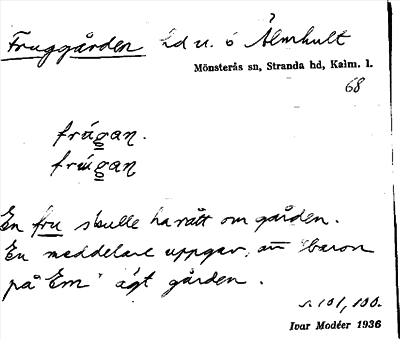 Fruggården hd u. ö Älmhult
Mönsterås sn, Stranda hd, Kalm. l.
68
frúgan.
frúgan
En fru skulle ha rått om gården.
En meddelare uppgav, att "baron
på Em" ägt gården.
s. 101, 100.
Ivar Modéer 1936